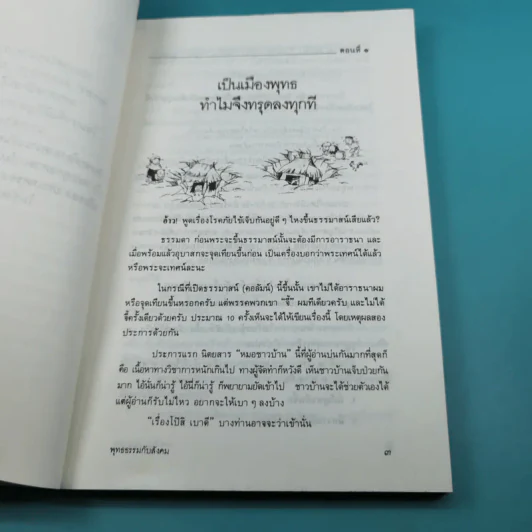 ตอนที่ ๑
เป็นเมืองพุทธ
ทำไมจึงทรุดลงทุกที
อ้าว! พูดเรื่องโรคภัยไข้เจ็บกันอยู่ดี ๆ ไหงขึ้นธรรมาสน์เสียแล้ว?
ธรรมดา ก่อนพระจะขึ้นธรรมาสน์นั้นจะต้องมีการอาราธนา และ
เมื่อพร้อมแล้วอุบาสกจะจุดเทียนขึ้นก่อน เป็นเครื่องบอกว่าพระเทศน์ได้แล้ว
หรือพระจะเทศน์ละนะ
ในกรณีที่เปิดธรรมาสน์ (คอลัมน์) นี้ขึ้นนั้น เขาไม่ได้อาราธนาผม
หรือจุดเทียนขึ้นหรอกครับ แต่พรรคพวกเขา "จี้" ผมทีเดียวครับ และไม่ได้
จี้ครั้งเดียวด้วยครับ ประมาณ 10 ครั้งเห็นจะได้ให้เขียนเรื่องนี้ โดยเหตุผลสอง
ประการด้วยกัน
ประการแรก นิตยสาร "หมอชาวบ้าน" นี้ที่ผู้อ่านบ่นกันมากที่สุดก็
คือ เนื้อหาทางวิชาการหนักเกินไป ทางผู้จัดทำก็หวังดี เห็นชาวบ้านเจ็บป่วยกัน
มาก ไอ้นั่นก็น่ารู้ ไอ้นี่ก็น่ารู้ ก็พยายามยัดเข้าไป ชาวบ้านจะได้ช่วยตัวเองได้
แต่ผู้อ่านก็รับไม่ไหว อยากจะให้เบา ๆ ลงบ้าง
"เรื่องโป๊สิ เบาดี" บางท่านอาจจะว่าเช่นนั้น
พุทธธรรมกับสังคม
๓